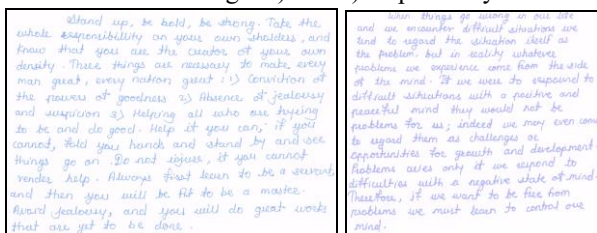 Stand up, be bold, be strong. Take the
whole responsibility on your own sholders, and
know that you are the creator of your own
density. Three things are necessary to make every
man great, every nation great : 1) Conviction of
the powers of goodness 2) Absence of jealousy
and suspicion 3) Helping all who are trying
to be and do good. Help if you can, if you
cannot, fold you hands and stand by and see
things go on. Do not injure, if you cannot
render help. Always first learn to be a servant,
and then you will be fit to be a master.
Avoid jealousy, and you will do great works
that are yet to be done.
When things go wrong in our life
and we encounter difficult situations we
tend to regard the situation itself as
the problem but in reality whatever
problems we experience come from the side
of the mind. If we were to respond to
difficult situations with a positive and
peaceful mind they would not be
problems for us; indeed we may even come
to regard them as challenges or
opportunities for growth and development.
Problems aries only if we respond to
difficulties with a negative state of mind.
Therefore, if we want to be free from
problems we must learn to control our
mind.